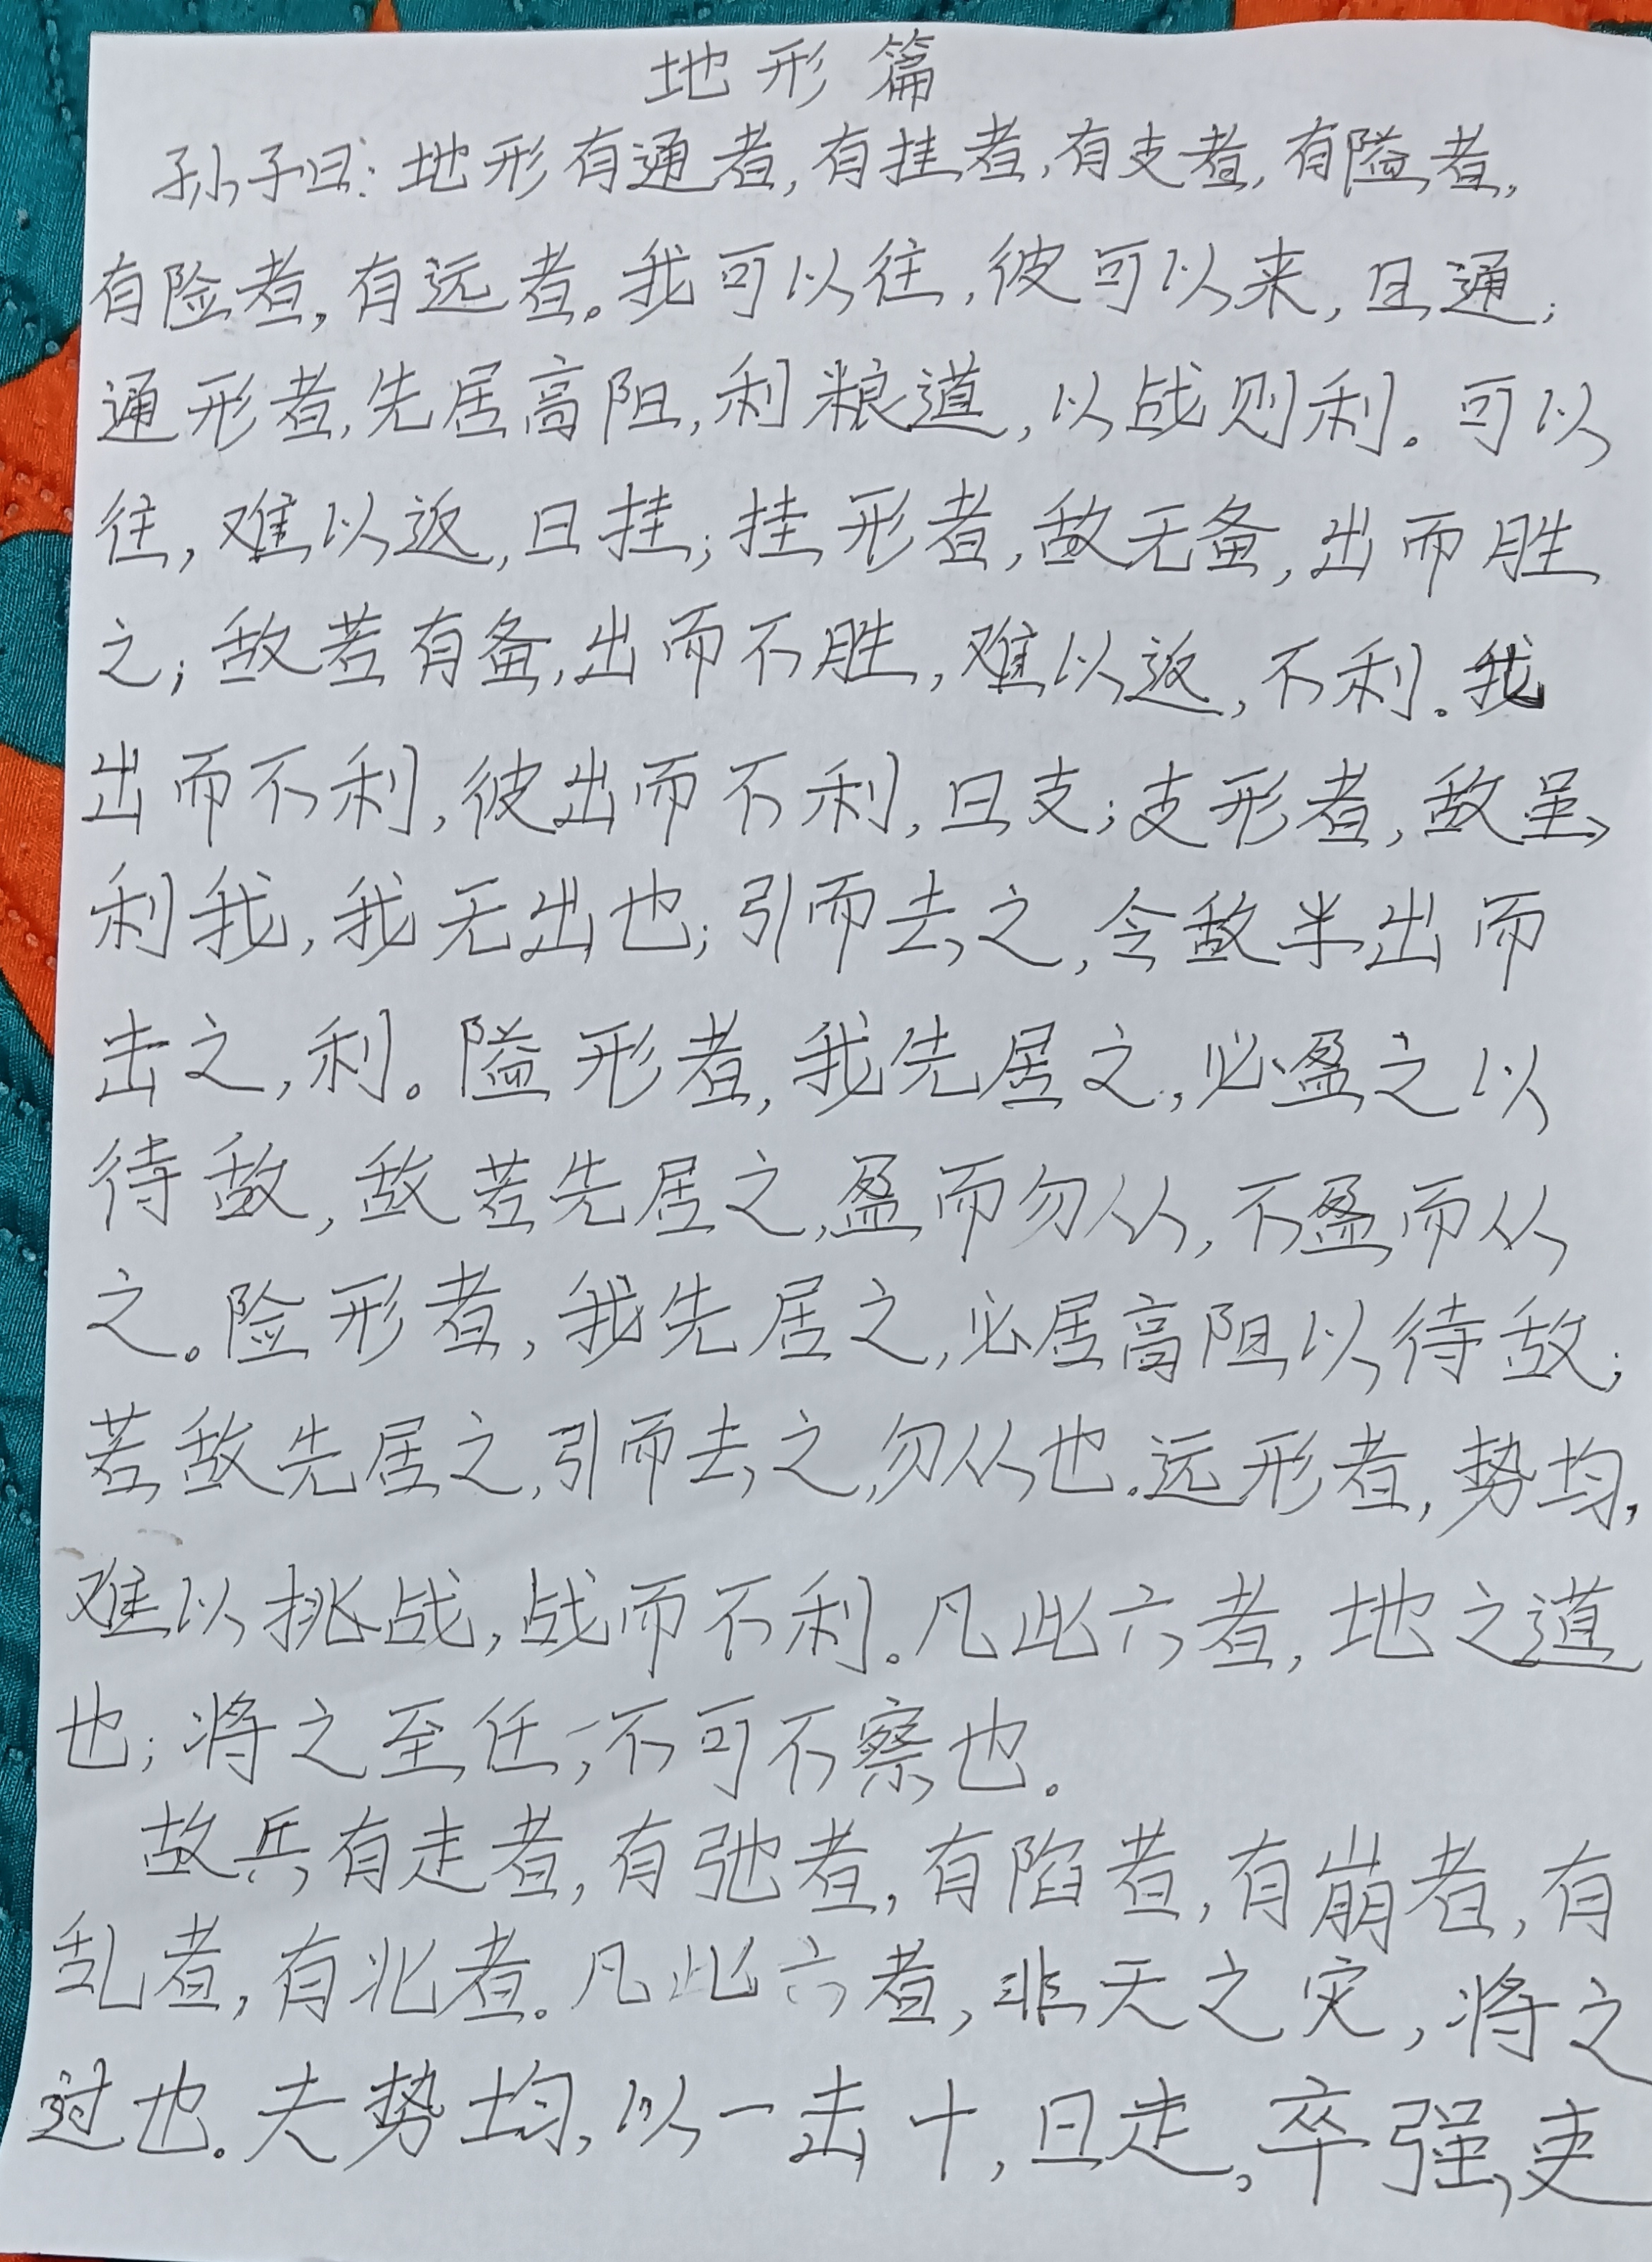 地形篇
孙子曰:地形有通者,有挂者,有支者,有隘者,
有险者,有远者。我可以往,彼可以来,曰通;
通形者,先居高阻,利粮道,以战则利。可以
往,难以返,曰挂;挂形者,敌无备,出而胜
之;敌若有备,出而不胜,难以返,不利。我
出而不利,彼出而不利,曰支;支形者,敌虽
利我,我无出也;引而去之,令敌半出而
击之,利。隘形者,我先居之,必盈之以
待敌,敌若先居之,盈而勿从,不盈而从
之。险形者,我先居之,必居高阻以待敌;
若敌先居之,引而去之,勿从也。远形者,势均,
难以挑战,战而不利。凡此六者,地之道
也;将之至任,不可不察也。
故兵有走者,有弛者,有陷者,有崩者,有
乱者,有北者。凡此六者,非天之灾,将之
过也。夫势均,以一击十,曰走。卒强,吏